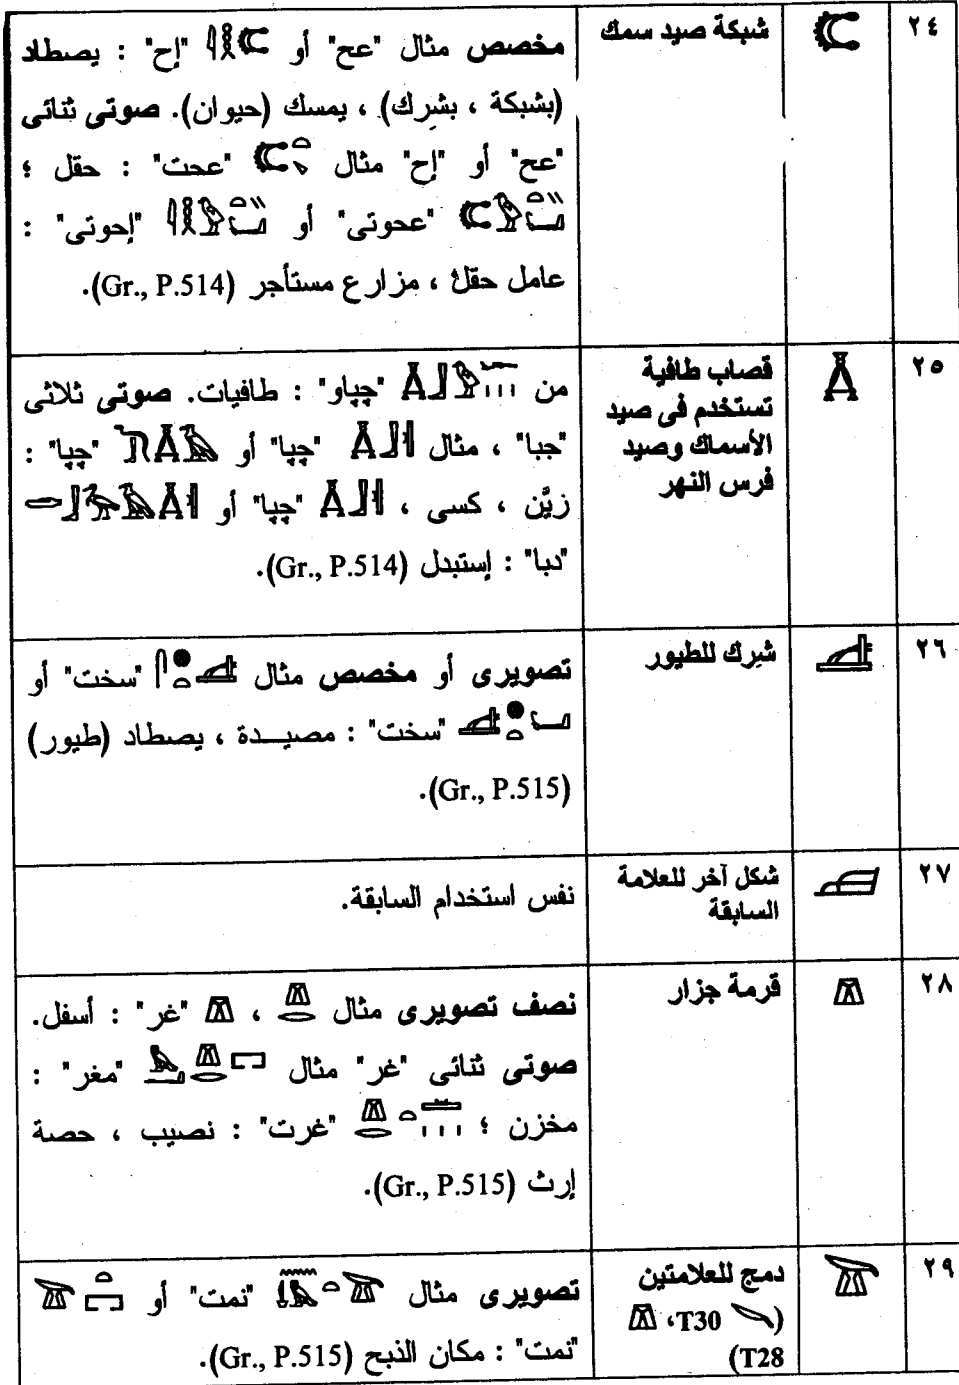 ٢٤
شبكة صيد سمك
مخصص مثال "عح" أو "إح" : يصطاد
(بشبكة ، بشرك) ، يمسك (حيوان). صوتى ثنائى
"عح" أو "إح" مثال "عحت" : حقل ؛
"عحوتى" أو "إحوتى" :
عامل حقل ، مزارع مستأجر (Gr., P.514).
٢٥
قصاب طافية
تستخدم فى صيد
الأسماك وصيد
فرس النهر
من "چباو" : طافيات. صوتى ثلاثى
"جبا" ، مثال "چبا" أو "چبا" :
زيَّن ، كسى ، "چبا" أو
"دبا" : إستبدل (Gr., P.514).
٢٦
شرك للطيور
تصويرى أو مخصص مثال "سخت" أو
"سخت" : مصيـــدة ، يصطاد (طيور)
(Gr., P.515).
٢٧
شكل آخر للعلامة
السابقة
نفس استخدام السابقة.
٢٨
قرمة جزار
نصف تصويرى مثال ، "غر" : أسفل.
صوتى ثنائى "غر" مثال "مغر" :
مخزن ؛ "غرت" : نصيب ، حصة
إرث (Gr., P.515).
٢٩
دمج للعلامتين
(T30 ،
T28)
تصويرى مثال "نمت" أو
"نمت" : مكان الذبح (Gr., P.515).